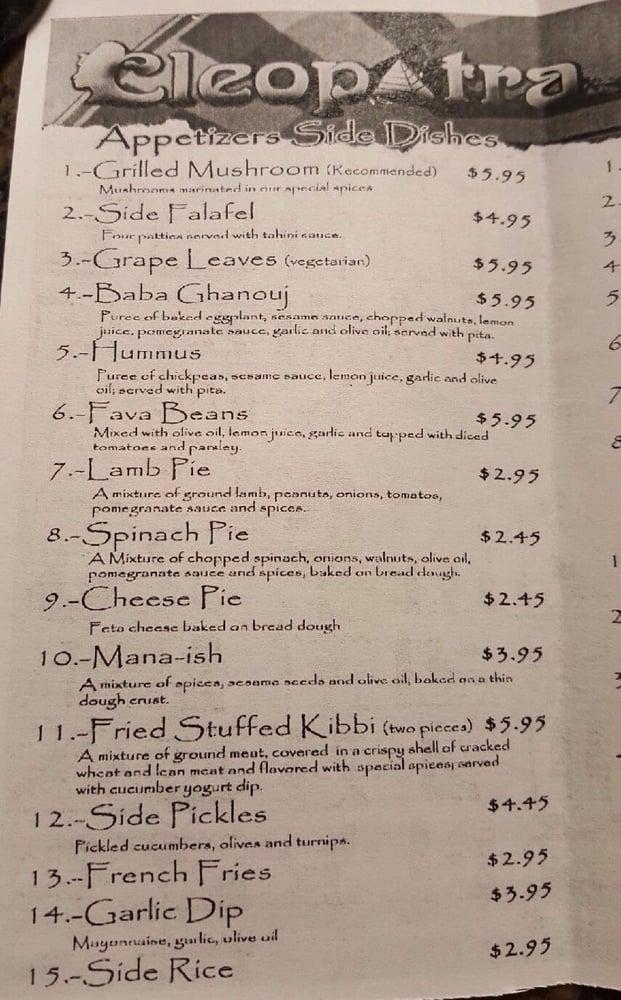 Cleopatra
Appetizers Side Dishes
1.-Grilled Mushroom (Recommended) $5.95
Mushrooms marinated in our special spices
2.-Side Falafel $4.95
Four patties served with tahini sauce.
3.-Grape Leaves (vegetarian) $5.95
4.-Baba Ghanouj $5.95
Puree of baked eggplant, sesame sauce, chopped walnuts, lemon
juice, pomegranate sauce, garlic and olive oil; served with pita.
5.-Hummus $4.95
Puree of chickpeas, sesame sauce, lemon juice, garlic and olive
oil; served with pita.
6.-Fava Beans $5.95
Mixed with olive oil, lemon juice, garlic and topped with diced
tomatoes and parsley.
7.-Lamb Pie $2.95
A mixture of ground lamb, peanuts, onions, tomatos,
pomegranate sauce and spices.
8.-Spinach Pie $2.45
A Mixture of chopped spinach, onions, walnuts, olive oil,
pomegranate sauce and spices, baked on bread dough.
9.-Cheese Pie $2.45
Feta cheese baked on bread dough
10.-Mana-ish $3.95
A mixture of spices, sesame seeds and olive oil, baked on a thin
dough crust.
11.-Fried Stuffed Kibbi (two pieces) $5.95
A mixture of ground meat, covered in a crispy shell of cracked
wheat and lean meat and flavored with special spices; served
with cucumber yogurt dip.
12.-Side Pickles $4.45
Pickled cucumbers, olives and turnips.
13.-French Fries $2.95
14.-Garlic Dip $3.95
Mayonnaise, garlic, olive oil
15.-Side Rice $2.95
1.
2.
3
4
5
6
7
8
1
2
3